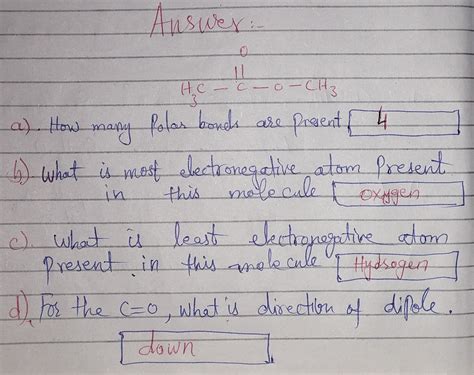 Answer:-
O
||
H3C - C - O - CH3
a). How many Polar bonds are present 4
b). What is most electronegative atom Present
in this molecule oxygen
c). What is least electronegative atom
Present in this molecule Hydrogen
d). For the C=O, what's direction of dipole.
down